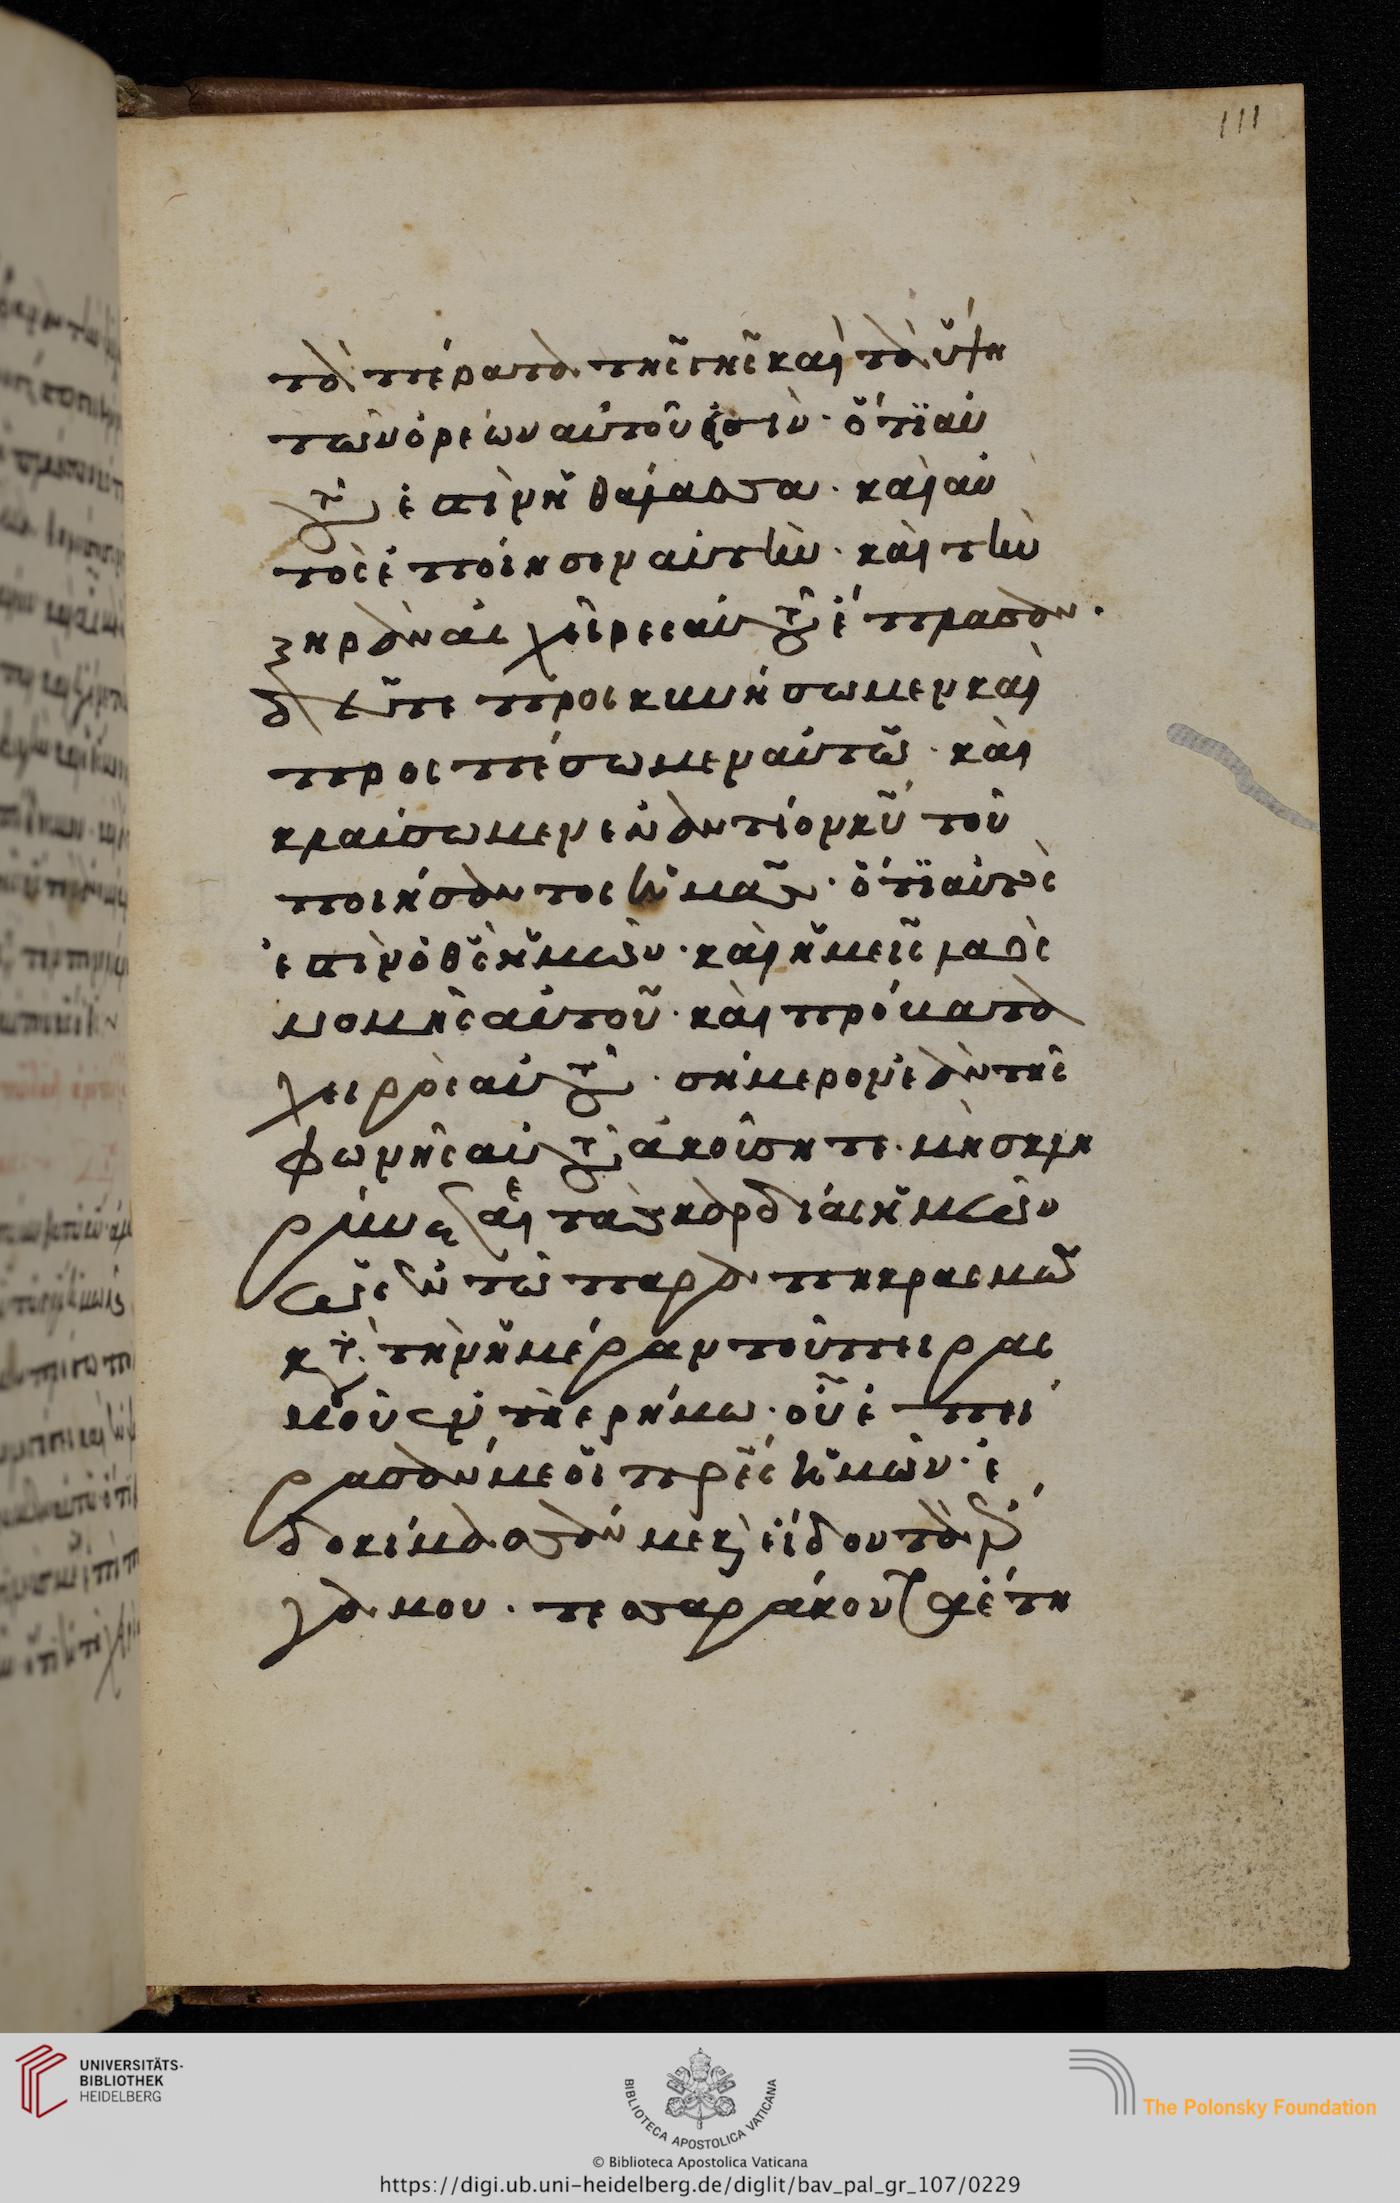 111
τὰ πέρατα τῆς γῆς καὶ τὰ ὕψη
τῶν ὀρέων αὐτοῦ εἰσιν· ὅτι αὐ
τοῦ ἐστὶν ἡ θάλασσα· καὶ αὐ
τὸς ἐποίησεν αὐτὴν· καὶ τὴν
ξηρὰν αἱ χεῖρες αὐτοῦ ἔπλασαν·
δεῦτε προσκυνήσωμεν καὶ
προσπέσωμεν αὐτῶ· καὶ
κλαύσωμεν ἐναντίον κυ τοῦ
ποιήσαντος ἡμᾶς· ὅτι αὐτὸς
ἐστὶν ὁ θς ἡμῶν· καὶ ἡμεῖς λαὸς
νομῆς αὐτοῦ· καὶ πρόβατα
χειρὸς αὐτοῦ· σήμερον ἐὰν τῆς
φωνῆς αὐτοῦ ἀκούσητε· μὴ σκλη
ρύνηται τὰς καρδίας ἡμῶν
ὡς ἐν τῶ παραπικρασμῶ
κατὰ τὴν ἡμέραν τοῦ πειρασ
μοῦ ἐν τῆ ἐρήμω· οὗ ἐπεί
ρασάν με οἱ πρες ἡμῶν· ἐ
δοκίμασάν με καὶ εἶδον τὰ ἔρ
γα μου· τεσσαράκοντα ἔτη
UNIVERSITÄTS-
BIBLIOTHEK
HEIDELBERG
BIBLIOTECA APOSTOLICA VATICANA
The Polonsky Foundation
© Biblioteca Apostolica Vaticana
https://digi.ub.uni-heidelberg.de/diglit/bav_pal_gr_107/0229